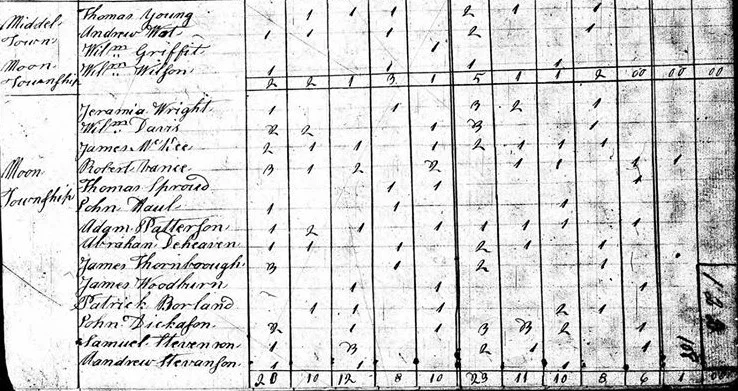 Thomas Young 1 1 1 2 1 1
Middel Andrew Wat 1 1 1 2 1
Town Wilm Griffit 1
Moon Wilm Wilson 1 1 1 1
Township 2 2 1 3 1 5 1 1 2 00 00 00
Jeramia Wright 1 1 3 2 1
Wilm Davis 2 2 1 3 1
James McKee 2 1 1 1 2 1 1 1
Moon Robert Vance 3 1 2 2 1 1 1 1
Township Thomas Sproud 1 1 1
John 1 1 1
Adam Patterson 1 2 1 1 1 1 1 1 1
Abrahan Deheaven 1 1 1 2 1 1
James Thornborough 3 1 2 1
James Woodburn 1 1 1
Patrick Borland 1 1 1 2 1
John Dickason 2 1 1 3 3 2 1
Samuel Stevenson 1 3 2 1 1
Randrew Stevanson 1 1
28 10 12 8 10 23 11 10 8 6 1